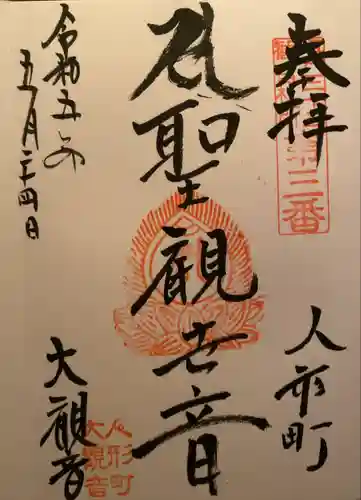 奉拝
第三番
聖観世音
人形町
令和五年
五月二十四日
大観音
人形町
大観音